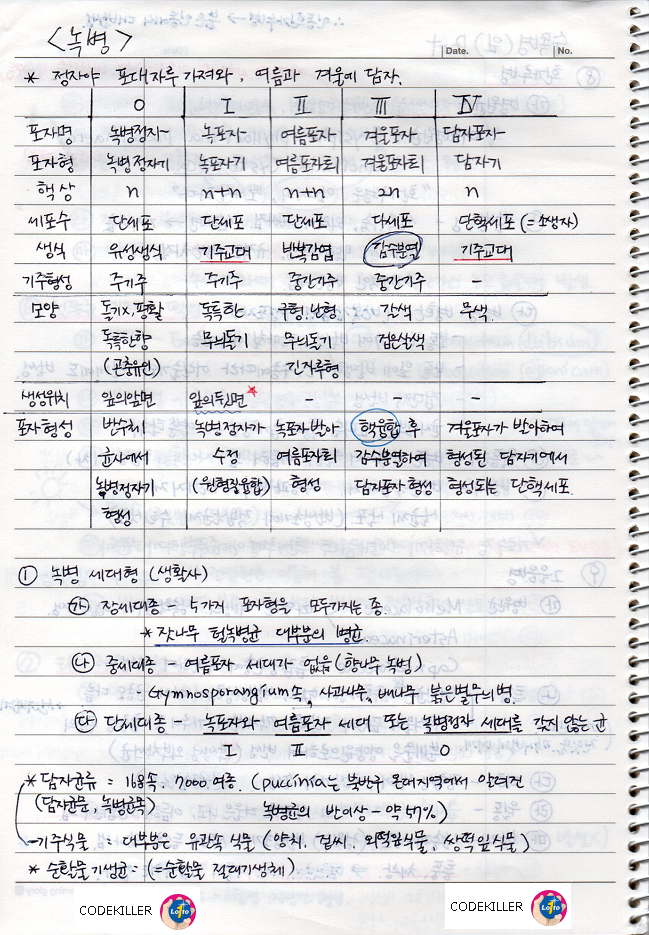 <녹병>
Date. No.
* 정자야 포대자루 가져와, 여름과 겨울에 담자.
0 I II III IV
포자명 녹병정자~ 녹포자~ 여름포자 겨울포자 담자포자~
포자형 녹병정자기 녹포자기 여름포자퇴 겨울포자퇴 담자기
핵상 n n+n n+n 2n n
세포수 단세포 단세포 단세포 다세포 단핵세포 (=소생자)
생식 유성생식 기주교대 반복감염 감수분열 기주교대
기주형성 주기주 주기주 중간기주 중간기주 -
모양 돌기x, 평활 독특한 구형, 난형 갈색 무색
독특한향 무늬돌기 무늬돌기 검은살색
(곤충유인) 긴자루형
생성위치 잎의앞면 잎의뒷면 * - - -
포자형성 반수체 녹병정자가 녹포자발아 핵융합 후 겨울포자가 발아하여
균사에서 수정 여름포자퇴 감수분열하여 형성된 담자기에서
녹병정자기 (원형질융합) 형성 담자포자 형성 형성되는 단핵세포.
형성
① 녹병 세대형 (생활사)
㉮ 장세대종 5가지 포자형을 모두가지는 종.
* 잣나무 털녹병균 대부분의 병균.
㉯ 중세대종 - 여름포자 세대가 없음 (향나무 녹병)
- Gymnosporangium속, 사과나무, 배나무 붉은별무늬병.
㉰ 단세대종 - 녹포자와 여름포자 세대 또는 녹병정자 세대를 갖지 않는 균
I II 0
* 담자균류 = 168속. 7000여종. (puccinia는 북반구 온대지역에서 알려진
(담자균문, 녹병균목) 녹병균의 반이상 - 약 47%)
- 기주식물 = 대부분은 유관속 식물 (양치, 겉씨, 외떡잎식물, 쌍떡잎식물)
* 순활물기생균 = (=순활물 절대기생체).
CODEKILLER Lotto
CODEKILLER Lotto